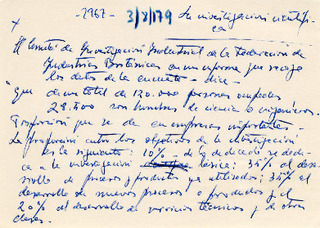 -2967- 3/8/179 La investigación científica
El Comité de Investigación Industrial de la Federación
de Industrias Británicas en un informe que recoge
los datos de la encuesta - dice -
que de un total de 120.000 personas empleadas
28.500 son hombres de ciencia o ingenieros.
Proporción que se da en empresas importantes -
La proporción entre los objetivos de la investigación
es la siguiente: 10% de se dedica
a la investigación básica; 35% al desarrollo
de procesos y productos ya utilizados; 35% al
desarrollo de nuevos procesos o productos y el
20% al desarrollo de servicios técnicos y de otras
clases.